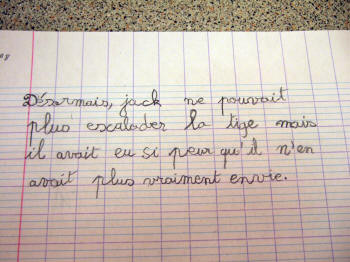 Désormais, jack ne pouvait
plus escalader la tige mais
il avait eu si peur qu'il n'en
avait plus vraiment envie.